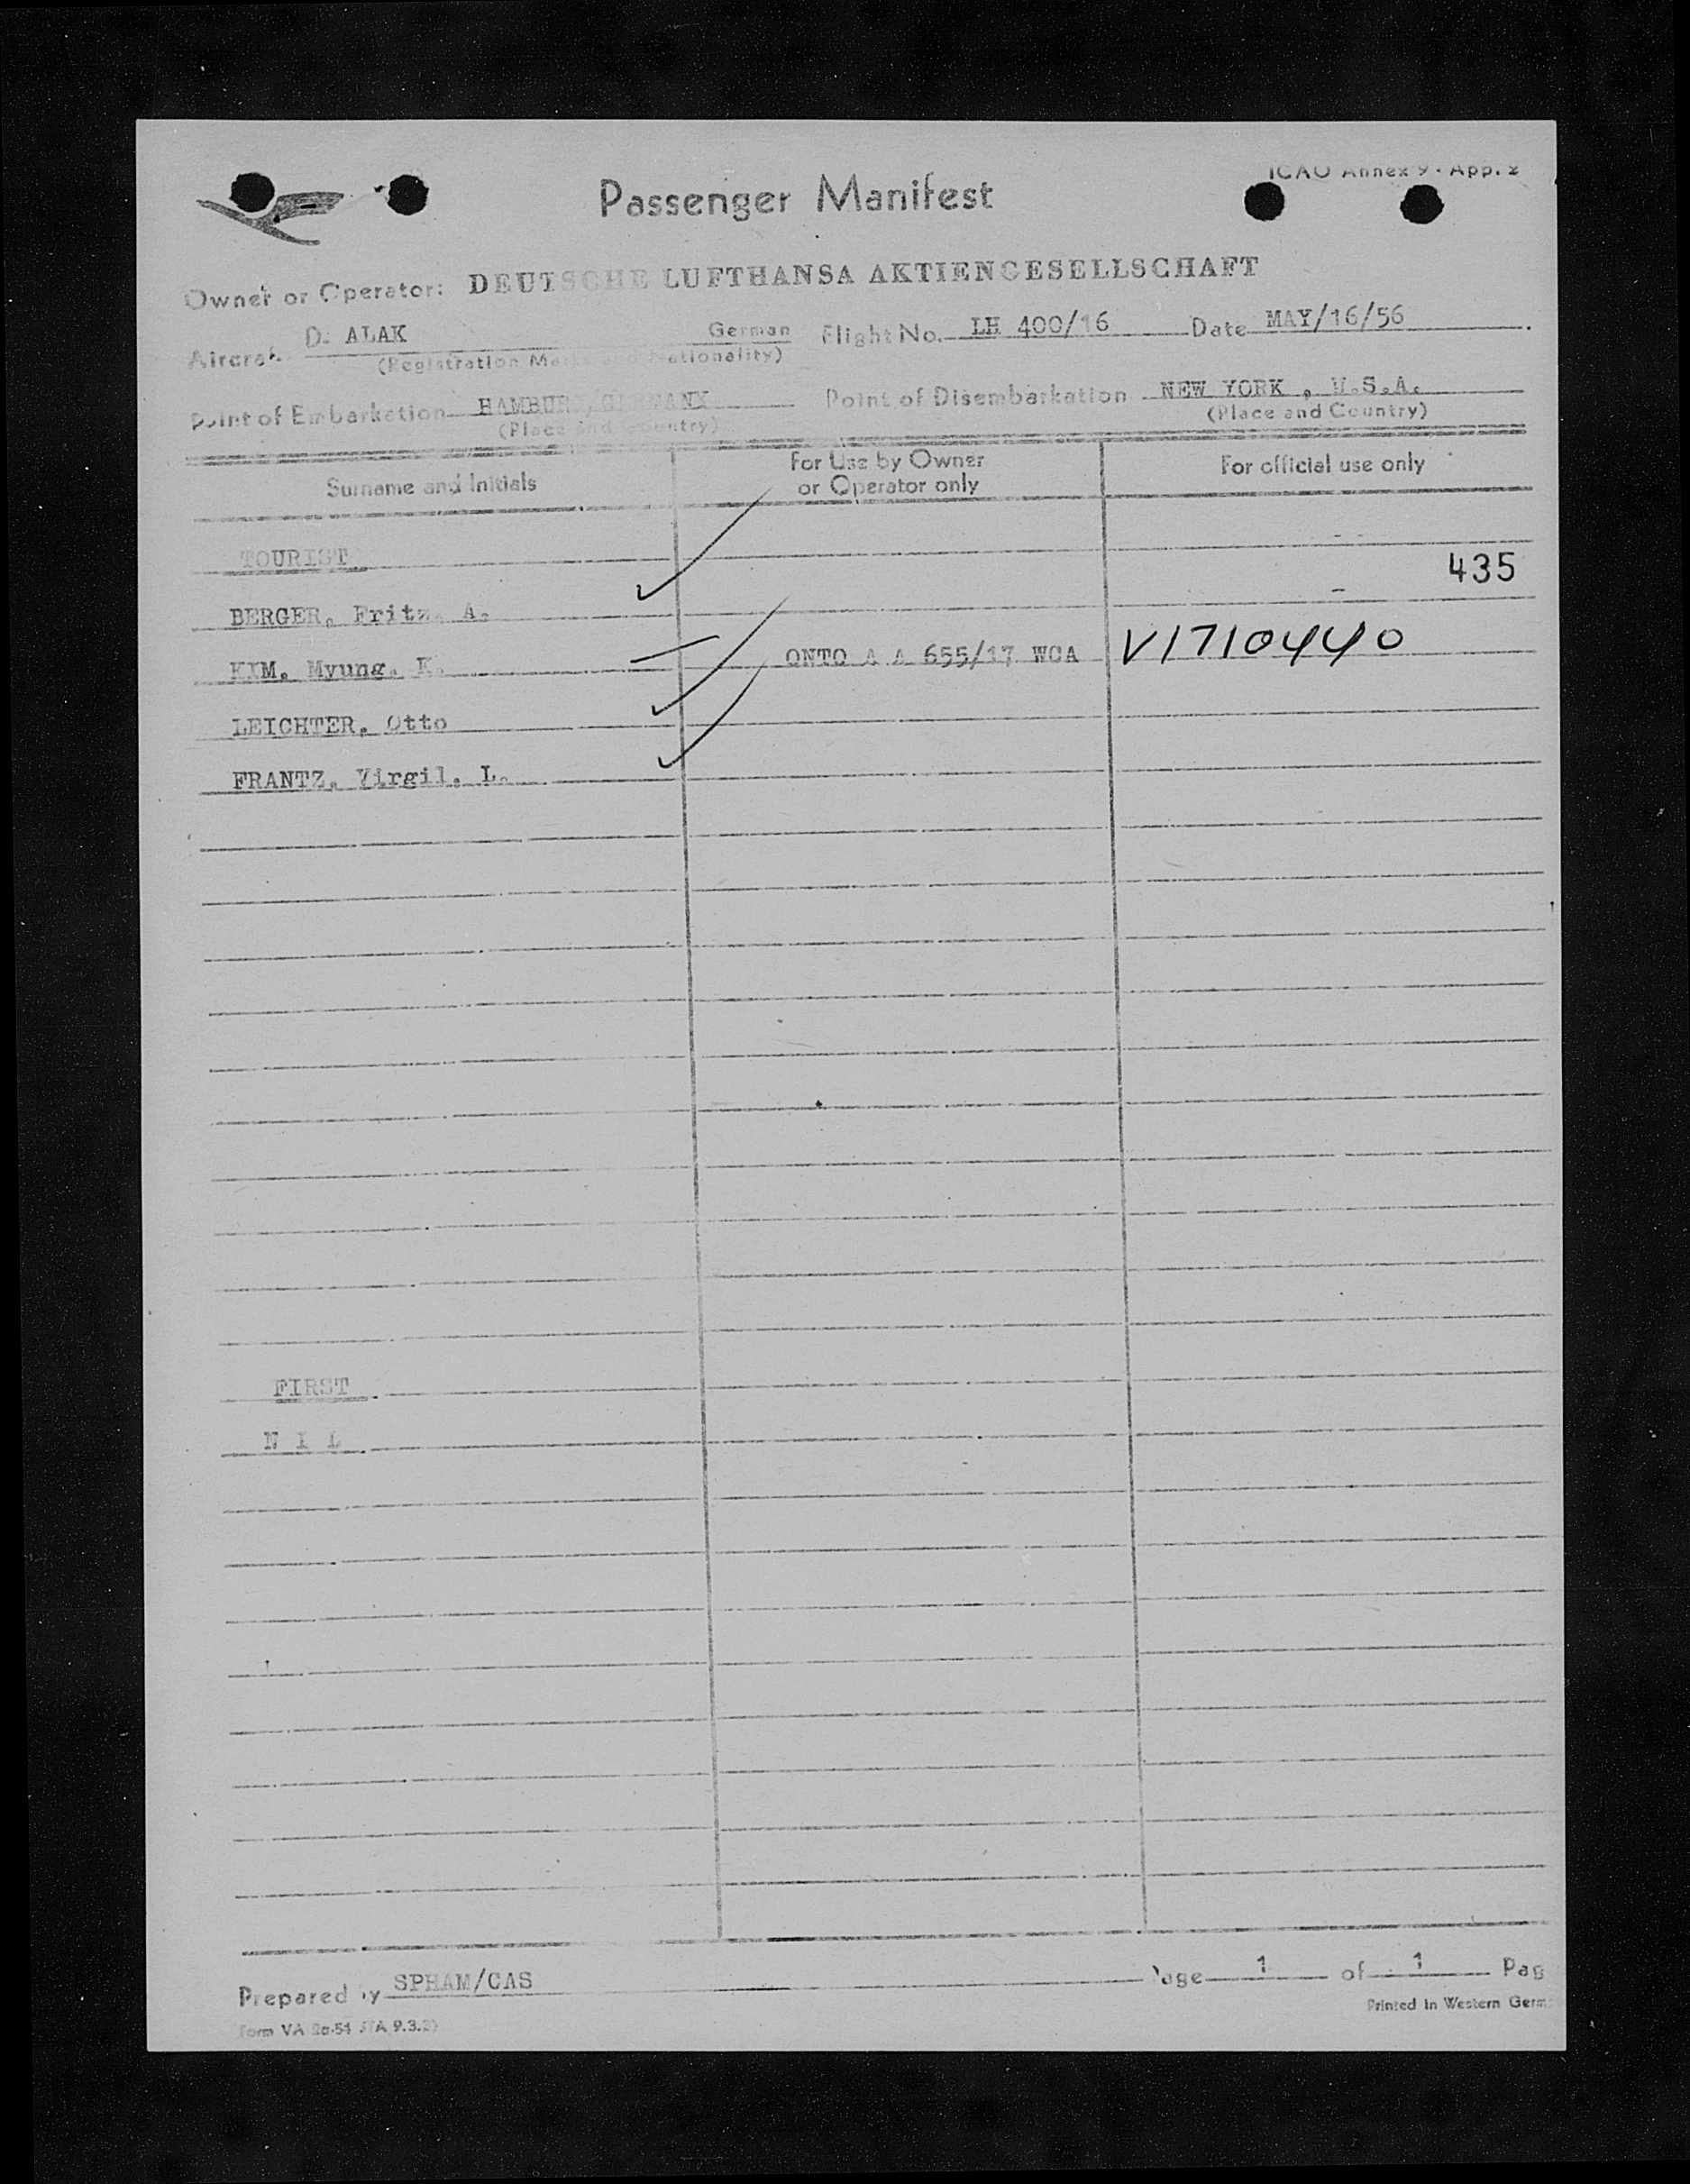 ICAO Annex 9 - App. 2
Passenger Manifest
Owner or Operator: DEUTSCHE LUFTHANSA AKTIENGESELLSCHAFT
Aircraft D- ALAK German Flight No. LH 400/16 Date MAY/16/56
(Registration Marks and Nationality)
Point of Embarkation HAMBURG/GERMANY Point of Disembarkation NEW YORK , U.S.A.
(Place and Country) (Place and Country)
Surname and Initials
For Use by Owner
or Operator only
For official use only
TOURIST
435
BERGER, Fritz. A.
KIM, Myung. K. ONTO A A 655/17 WCA V1710440
LEICHTER, Otto
FRANTZ, Virgil. L.
FIRST
N I L
Prepared by SPHAM/CAS Page 1 of 1 Pag
Printed in Western Germ
Form VA 2a-54